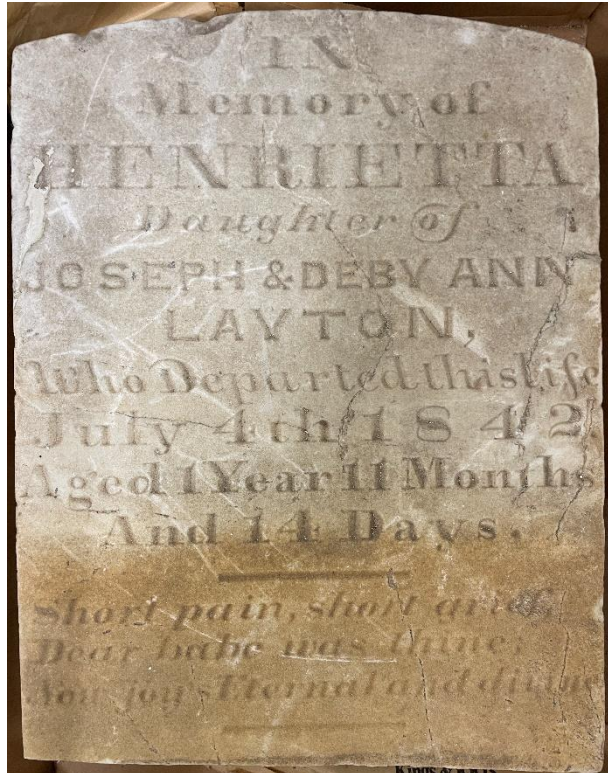 IN
Memory of
HENRIETTA
Daughter of
JOSEPH & DEBY ANN
LAYTON,
Who Departed this life
July 4th 1842
Aged 1 Year 11 Months
And 14 Days.
Short pain, short grief,
Dear babe was thine;
Now joys Eternal and divine